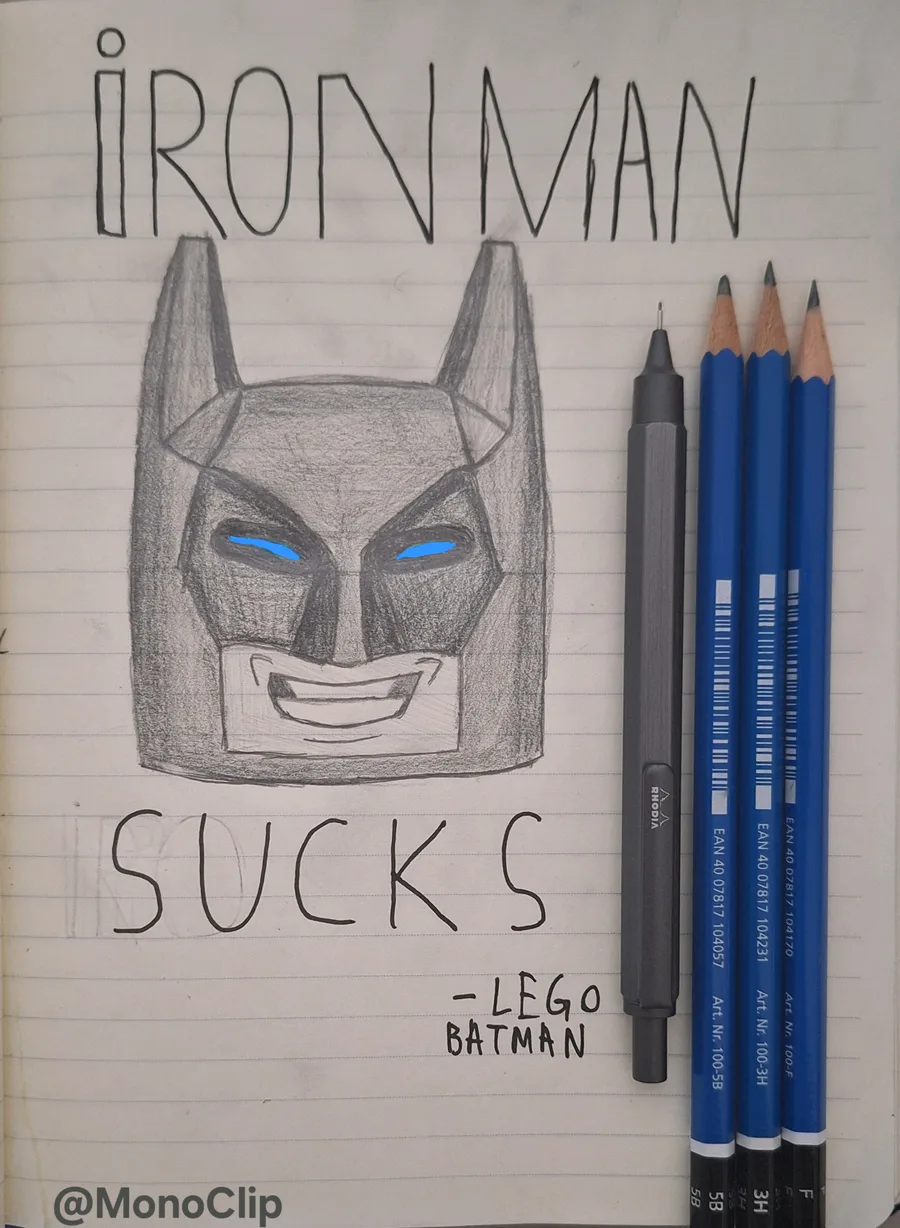 iRON MAN
SUCKS
-LEGO
BATMAN
RHODIA
EAN 40 07817 104057 Art. Nr. 100-5B
EAN 40 07817 104231 Art. Nr. 100-3H
EAN 40 07817 104170 Art. Nr. 100-F
5B 5B 3H 3H F
@MonoClip